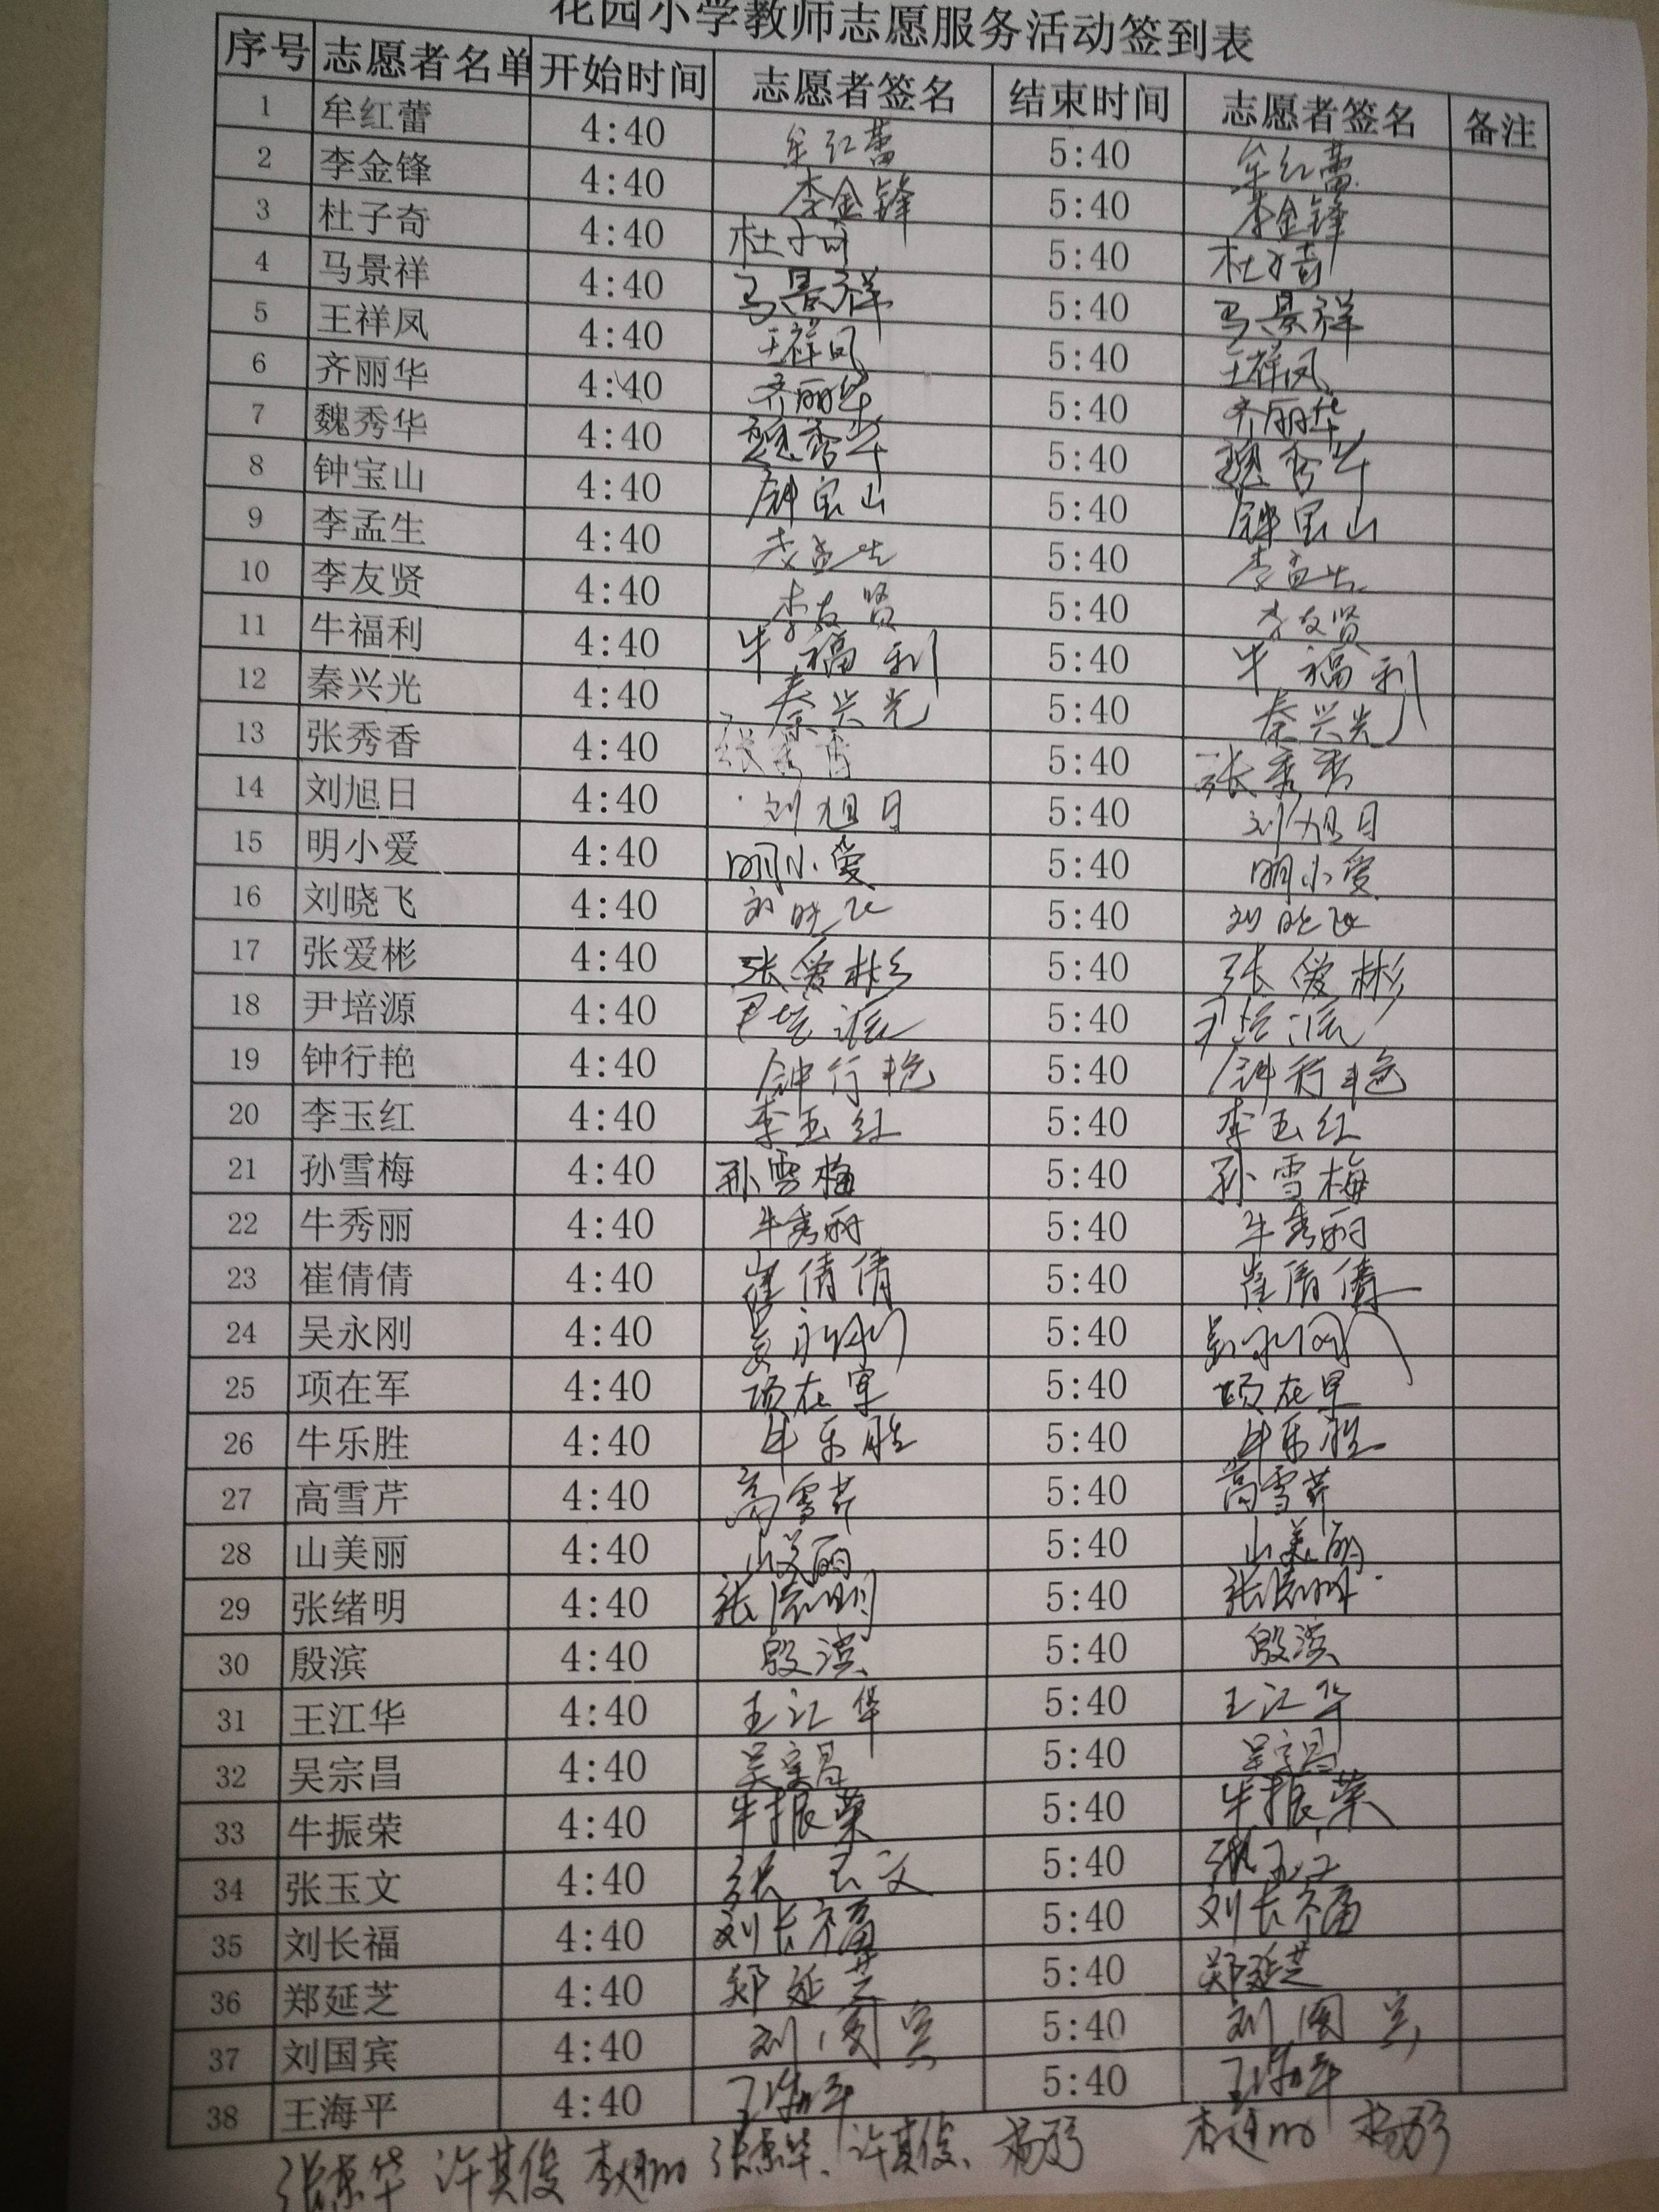 花园小学教师志愿服务活动签到表
序号 志愿者名单 开始时间 志愿者签名 结束时间 志愿者签名 备注
1 牟红蕾 4:40 牟红蕾 5:40 牟红蕾
2 李金锋 4:40 李金锋 5:40 李金锋
3 杜子奇 4:40 杜子奇 5:40 杜子奇
4 马景祥 4:40 马景祥 5:40 马景祥
5 王祥凤 4:40 王祥凤 5:40 王祥凤
6 齐丽华 4:40 齐丽华 5:40 齐丽华
7 魏秀华 4:40 魏秀华 5:40 魏秀华
8 钟宝山 4:40 钟宝山 5:40 钟宝山
9 李孟生 4:40 李孟生 5:40 李孟生
10 李友贤 4:40 李友贤 5:40 李友贤
11 牛福利 4:40 牛福利 5:40 牛福利
12 秦兴光 4:40 秦兴光 5:40 秦兴光
13 张秀香 4:40 张秀香 5:40 张秀香
14 刘旭日 4:40 刘旭日 5:40 刘旭日
15 明小爱 4:40 明小爱 5:40 明小爱
16 刘晓飞 4:40 刘晓飞 5:40 刘晓飞
17 张爱彬 4:40 张爱彬 5:40 张爱彬
18 尹培源 4:40 尹培源 5:40 尹培源
19 钟行艳 4:40 钟行艳 5:40 钟行艳
20 李玉红 4:40 李玉红 5:40 李玉红
21 孙雪梅 4:40 孙雪梅 5:40 孙雪梅
22 牛秀丽 4:40 牛秀丽 5:40 牛秀丽
23 崔倩倩 4:40 崔倩倩 5:40 崔倩倩
24 吴永刚 4:40 吴永刚 5:40 吴永刚
25 项在军 4:40 项在军 5:40 项在军
26 牛乐胜 4:40 牛乐胜 5:40 牛乐胜
27 高雪芹 4:40 高雪芹 5:40 高雪芹
28 山美丽 4:40 山美丽 5:40 山美丽
29 张绪明 4:40 张绪明 5:40 张绪明
30 殷滨 4:40 殷滨 5:40 殷滨
31 王江华 4:40 王江华 5:40 王江华
32 吴宗昌 4:40 吴宗昌 5:40 吴宗昌
33 牛振荣 4:40 牛振荣 5:40 牛振荣
34 张玉文 4:40 张玉文 5:40 张玉文
35 刘长福 4:40 刘长福 5:40 刘长福
36 郑延芝 4:40 郑延芝 5:40 郑延芝
37 刘国宾 4:40 刘国宾 5:40 刘国宾
38 王海平 4:40 王海平 5:40 王海平
张京华 许其俊 张京华、许其俊、